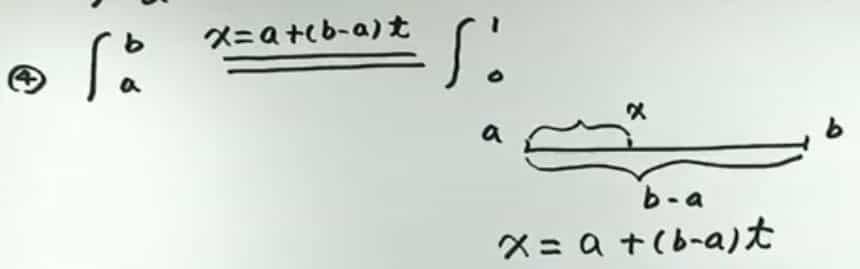 ④ ∫_a^b x=a+(b-a)t ∫_0^1
a x b
b-a
x = a + (b-a)t